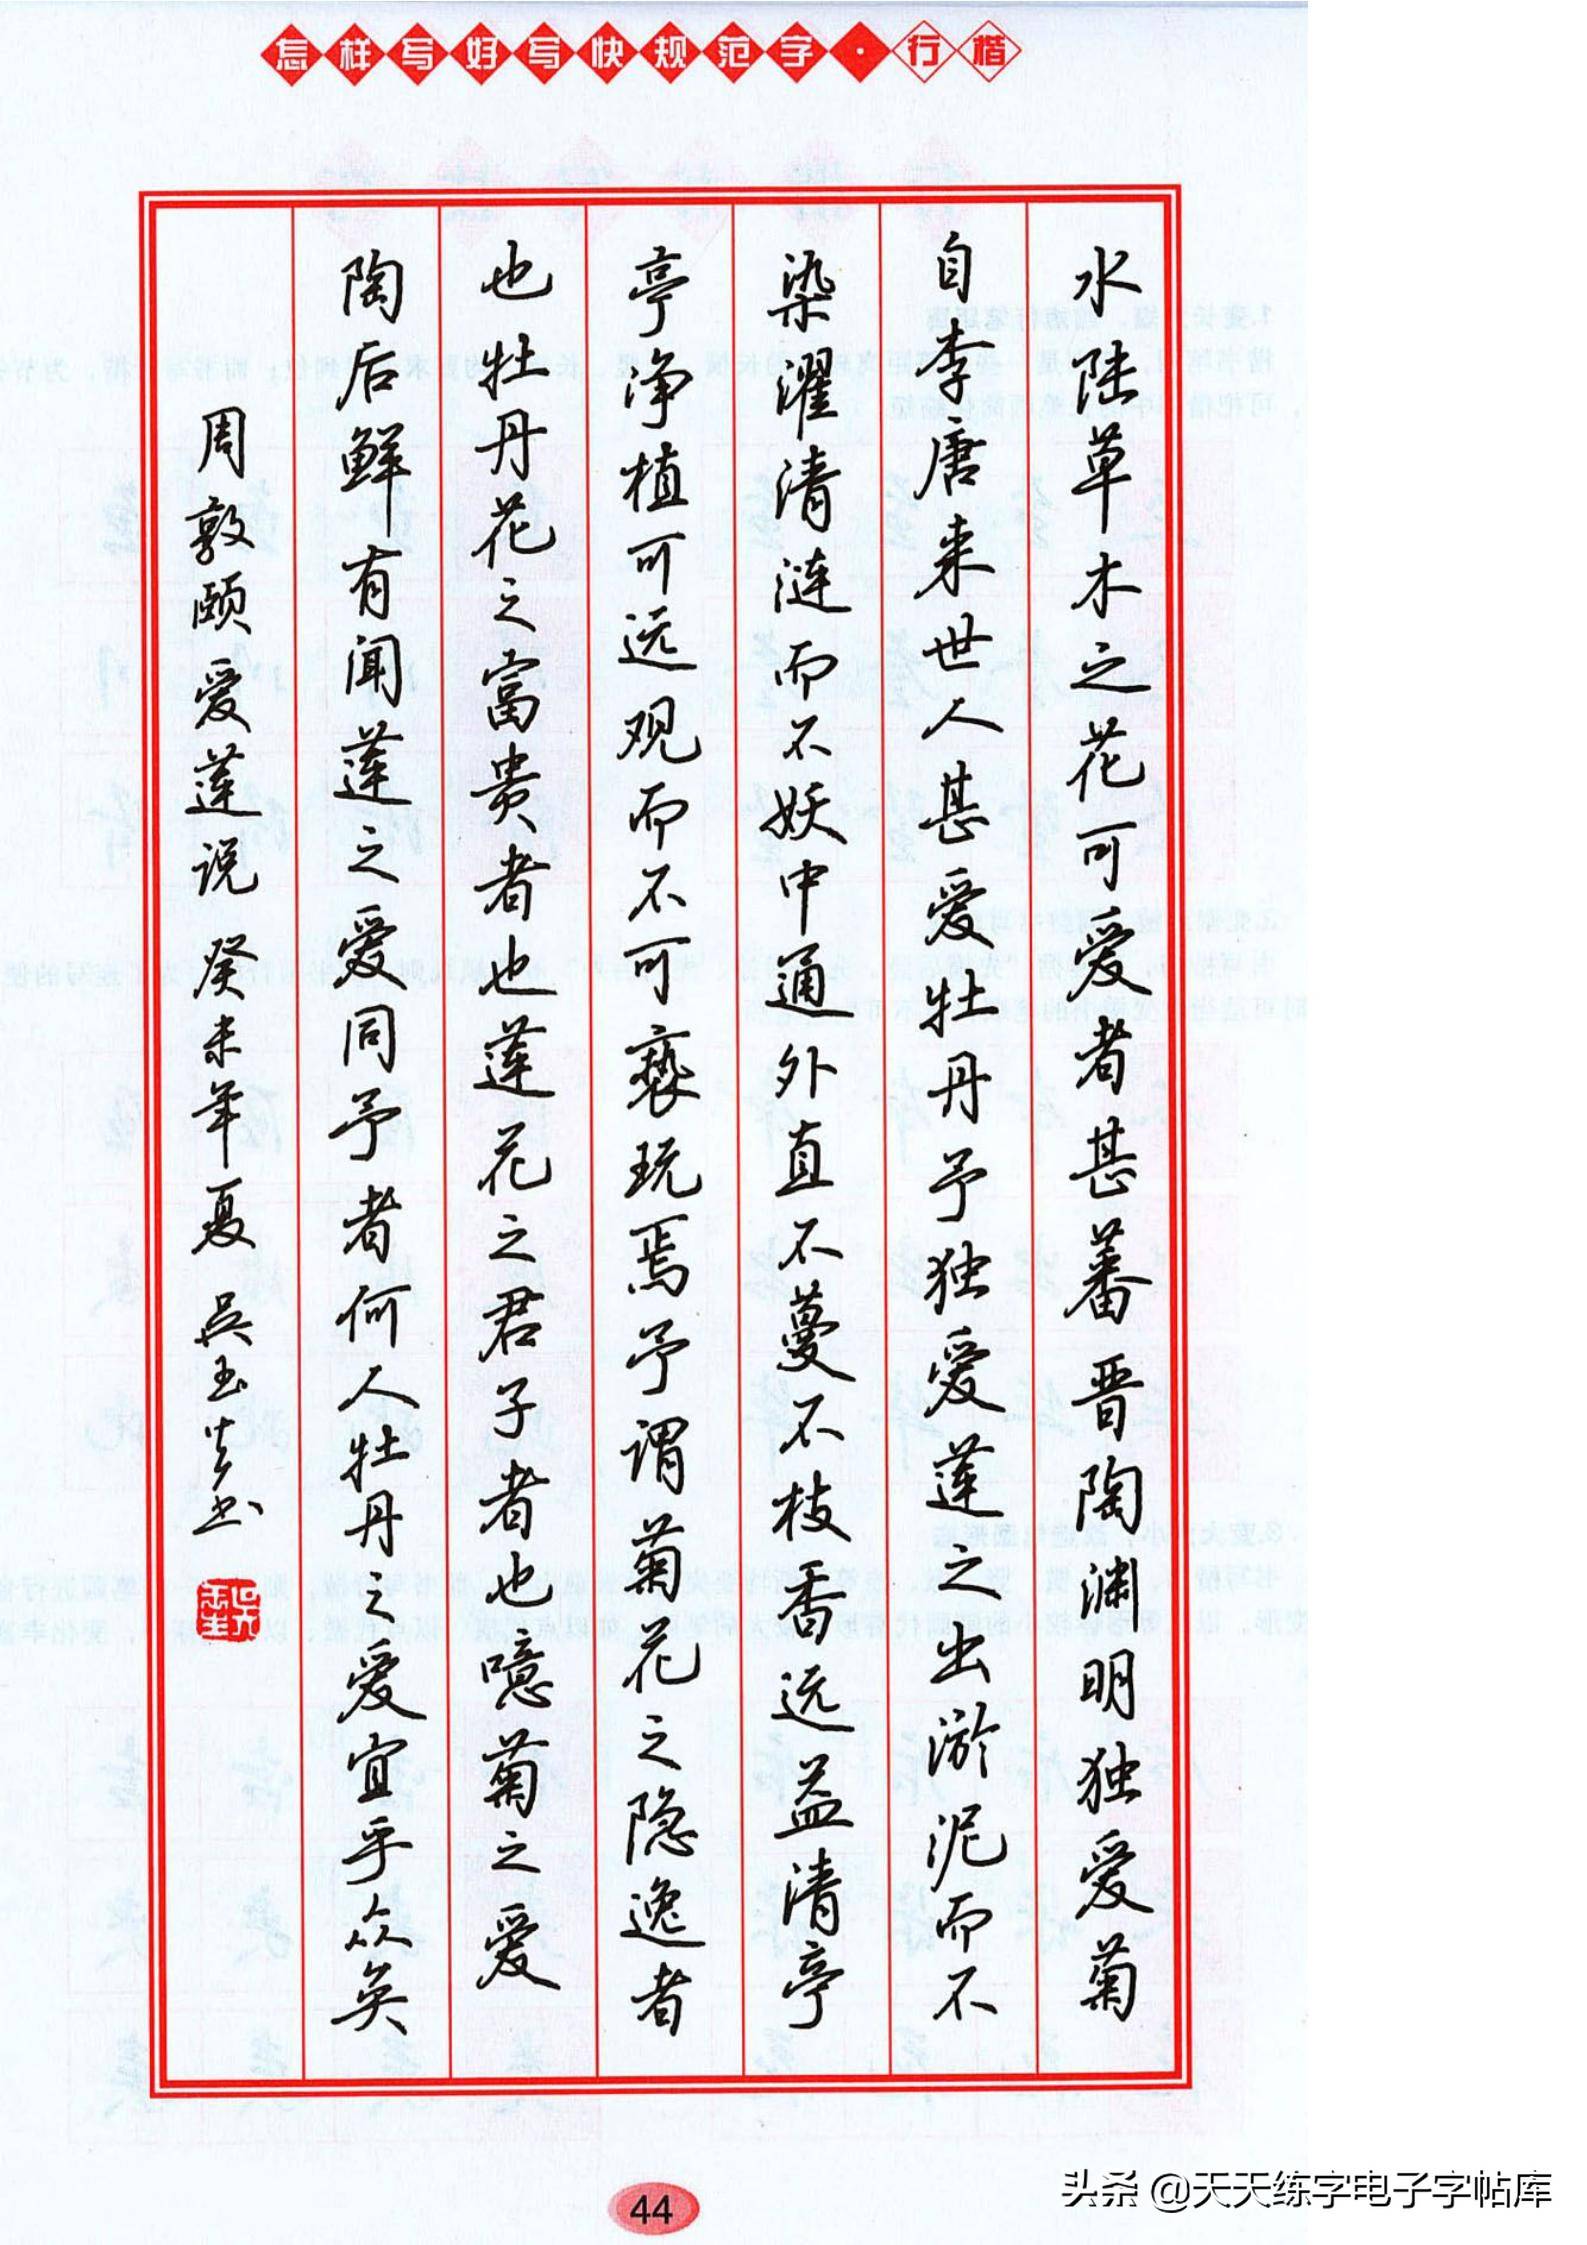 怎样写好写快规范字·行楷
水陆草木之花可爱者甚蕃晋陶渊明独爱菊
自李唐来世人甚爱牡丹予独爱莲之出淤泥而不
染濯清涟而不妖中通外直不蔓不枝香远益清亭
亭净植可远观而不可亵玩焉予谓菊花之隐逸者
也牡丹花之富贵者也莲花之君子者也噫菊之爱
陶后鲜有闻莲之爱同予者何人牡丹之爱宜乎众矣
周敦颐爱莲说 癸未年夏 吴玉生书
44
头条 @天天练字电子字帖库